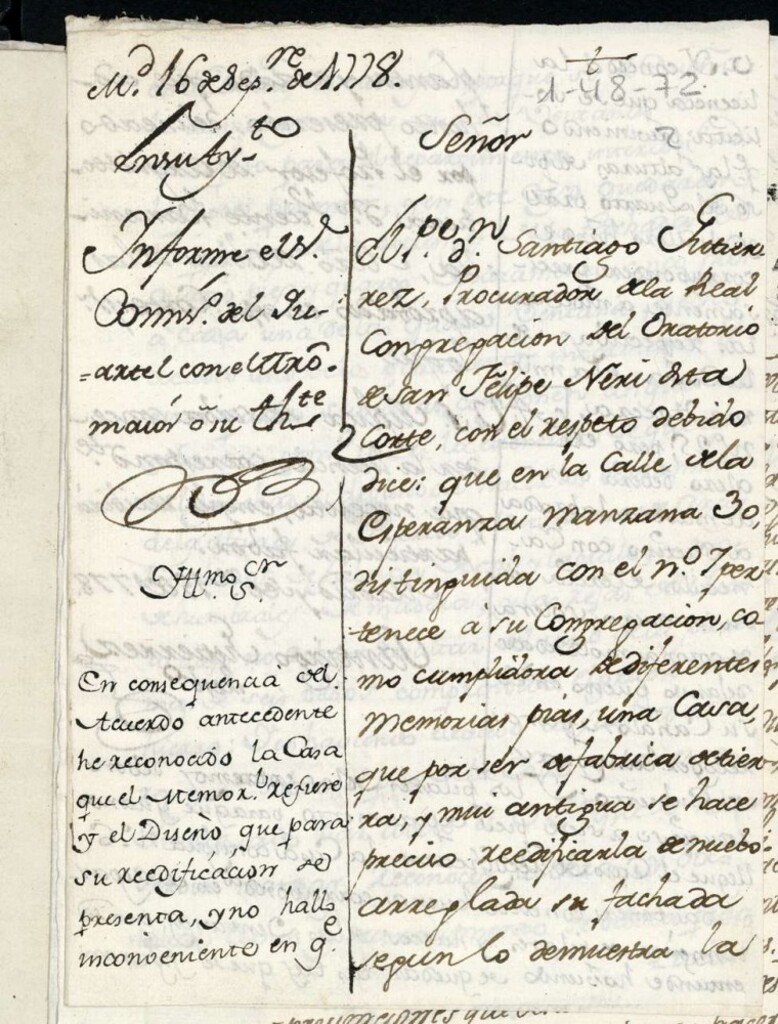 M.d 16 de Sep.re de 1778.
t
1-48-72
En su Ay.to
Informe el S.r
Comis.o del Qu-
=artel con el Mro.
maiór
Yll.mo S.or
En consequencia del
Acuerdo antecedente
he reconocido la Casa
que el Memor.l refiere
y el Diseño que para
su reedificácion se
presenta, y no hallo
inconveniente en q.e
Señor
El P.e d.n Santiago Gutier
rez, Procurador de la Real
Congregacion del Oratorio
de San Felipe Neri de esta
Corte, con el respeto debido
dice: que en la Calle de la
Esperanza manzana 30,
distinguida con el n.o 7 per
tenece á su Congregacion, co
mo cumplidora de diferentes
Memorias pias, una Casa,
que por ser de fabrica de tier
ra, y mui antigua se hace
preciso reedificarla de nuebo
arreglada su fachada
segun lo demuestra la